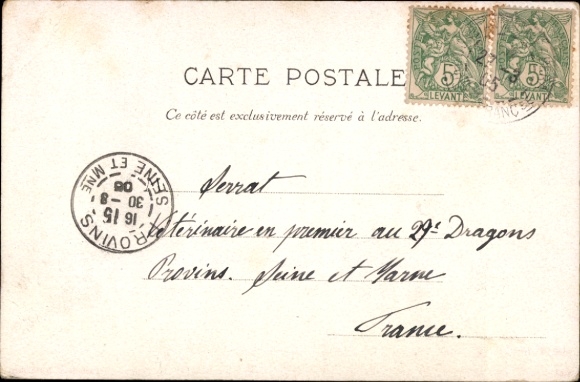 CARTE POSTALE
Ce côté est exclusivement réservé à l'adresse.
5c 5c
LEVANT LEVANT
PROVINS
SEINE ET MNE
16 15
30 - 8
05
Serrat
Vétérinaire en premier au 29e Dragons
Provins. Seine et Marne
France.